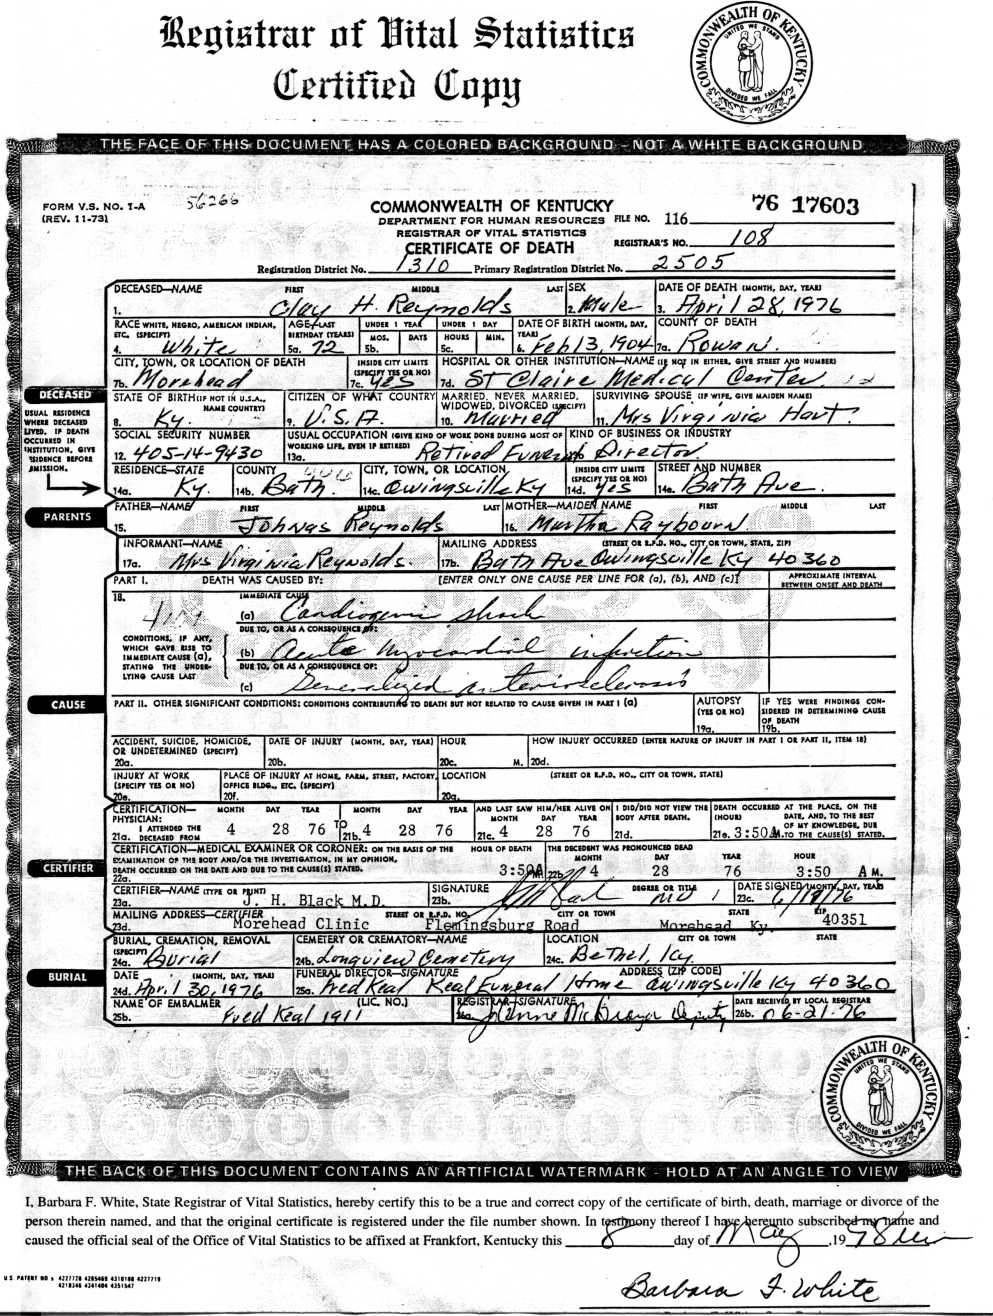 Registrar of Vital Statistics
Certified Copy
COMMONWEALTH OF KENTUCKY
UNITED WE STAND
DIVIDED WE FALL
THE FACE OF THIS DOCUMENT HAS A COLORED BACKGROUND - NOT A WHITE BACKGROUND
FORM V.S. NO. 1-A
(REV. 11-73)
56266
COMMONWEALTH OF KENTUCKY
DEPARTMENT FOR HUMAN RESOURCES
REGISTRAR OF VITAL STATISTICS
CERTIFICATE OF DEATH
FILE NO. 116 76 17603
REGISTRAR'S NO. 108
Registration District No. 1310 Primary Registration District No. 2505
DECEASED—NAME FIRST MIDDLE LAST SEX DATE OF DEATH (MONTH, DAY, YEAR)
1. Clay H. Reynolds 2. Male 3. April 28, 1976
RACE WHITE, NEGRO, AMERICAN INDIAN, ETC. (SPECIFY) AGE—LAST BIRTHDAY (YEARS) UNDER 1 YEAR UNDER 1 DAY DATE OF BIRTH (MONTH, DAY, YEAR) COUNTY OF DEATH
MOS. DAYS HOURS MIN.
4. White 5a. 72 5b. 5c. 6. Feb 13, 1904 7a. Rowan
CITY, TOWN, OR LOCATION OF DEATH INSIDE CITY LIMITS (SPECIFY YES OR NO) HOSPITAL OR OTHER INSTITUTION—NAME (IF NOT IN EITHER, GIVE STREET AND NUMBER)
7b. Morehead 7c. Yes 7d. St Claire Medical Center
DECEASED
USUAL RESIDENCE WHERE DECEASED LIVED. IF DEATH OCCURRED IN INSTITUTION, GIVE RESIDENCE BEFORE ADMISSION.
STATE OF BIRTH (IF NOT IN U.S.A., NAME COUNTRY) CITIZEN OF WHAT COUNTRY MARRIED, NEVER MARRIED, WIDOWED, DIVORCED (SPECIFY) SURVIVING SPOUSE (IF WIFE, GIVE MAIDEN NAME)
8. Ky. 9. U.S.A. 10. Married 11. Mrs Virginia Hart
SOCIAL SECURITY NUMBER USUAL OCCUPATION (GIVE KIND OF WORK DONE DURING MOST OF WORKING LIFE, EVEN IF RETIRED) KIND OF BUSINESS OR INDUSTRY
12. 405-14-9430 13a. Retired Funeral Director
RESIDENCE—STATE COUNTY CITY, TOWN, OR LOCATION INSIDE CITY LIMITS (SPECIFY YES OR NO) STREET AND NUMBER
14a. Ky. 14b. Bath 14c. Owingsville Ky 14d. Yes 14e. Bath Ave.
PARENTS
FATHER—NAME FIRST MIDDLE LAST MOTHER—MAIDEN NAME FIRST MIDDLE LAST
15. Johnas Reynolds 16. Martha Raybourn
INFORMANT—NAME MAILING ADDRESS (STREET OR R.F.D. NO., CITY OR TOWN, STATE, ZIP)
17a. Mrs Virginia Reynolds. 17b. Bath Ave Owingsville Ky 40360
PART I. DEATH WAS CAUSED BY: [ENTER ONLY ONE CAUSE PER LINE FOR (a), (b), AND (c)] APPROXIMATE INTERVAL BETWEEN ONSET AND DEATH
18. IMMEDIATE CAUSE
(a) Cardiogenic shock
DUE TO, OR AS A CONSEQUENCE OF:
CONDITIONS, IF ANY, WHICH GAVE RISE TO IMMEDIATE CAUSE (a), STATING THE UNDERLYING CAUSE LAST
(b) Acute Myocardial infarction
DUE TO, OR AS A CONSEQUENCE OF:
(c) Generalized arteriosclerosis
CAUSE
PART II. OTHER SIGNIFICANT CONDITIONS: CONDITIONS CONTRIBUTING TO DEATH BUT NOT RELATED TO CAUSE GIVEN IN PART I (a) AUTOPSY (YES OR NO) IF YES WERE FINDINGS CONSIDERED IN DETERMINING CAUSE OF DEATH
19a. 19b.
ACCIDENT, SUICIDE, HOMICIDE, OR UNDETERMINED (SPECIFY) DATE OF INJURY (MONTH, DAY, YEAR) HOUR HOW INJURY OCCURRED (ENTER NATURE OF INJURY IN PART I OR PART II, ITEM 18)
20a. 20b. 20c. M. 20d.
INJURY AT WORK (SPECIFY YES OR NO) PLACE OF INJURY AT HOME, FARM, STREET, FACTORY, OFFICE BLDG., ETC. (SPECIFY) LOCATION (STREET OR R.F.D. NO., CITY OR TOWN, STATE)
20e. 20f. 20g.
CERTIFICATION—PHYSICIAN: MONTH DAY YEAR MONTH DAY YEAR AND LAST SAW HIM/HER ALIVE ON MONTH DAY YEAR I DID/DID NOT VIEW THE BODY AFTER DEATH. DEATH OCCURRED AT THE PLACE, ON THE DATE, AND, TO THE BEST OF MY KNOWLEDGE, DUE TO THE CAUSE(S) STATED. (HOUR)
21a. I ATTENDED THE DECEASED FROM 4 28 76 TO 21b. 4 28 76 21c. 4 28 76 21d. 21e. 3:50A M.
CERTIFIER
CERTIFICATION—MEDICAL EXAMINER OR CORONER: ON THE BASIS OF THE EXAMINATION OF THE BODY AND/OR THE INVESTIGATION, IN MY OPINION, DEATH OCCURRED ON THE DATE AND DUE TO THE CAUSE(S) STATED. HOUR OF DEATH THE DECEDENT WAS PRONOUNCED DEAD MONTH DAY YEAR HOUR
22a. 3:50A M 22b. 4 28 76 3:50 A M.
CERTIFIER—NAME (TYPE OR PRINT) SIGNATURE DEGREE OR TITLE DATE SIGNED (MONTH, DAY, YEAR)
23a. J. H. Black M.D. 23b. MD 23c. 6/18/76
MAILING ADDRESS—CERTIFIER STREET OR R.F.D. NO. CITY OR TOWN STATE ZIP
23d. Morehead Clinic Flemingsburg Road Morehead Ky. 40351
BURIAL, CREMATION, REMOVAL (SPECIFY) CEMETERY OR CREMATORY—NAME LOCATION CITY OR TOWN STATE
24a. Burial 24b. Longview Cemetery 24c. Bethel, Ky.
BURIAL
DATE (MONTH, DAY, YEAR) FUNERAL DIRECTOR—SIGNATURE ADDRESS (ZIP CODE)
24d. April 30, 1976 25a. Fred Keal Keal Funeral Home Owingsville Ky 40360
NAME OF EMBALMER (LIC. NO.) REGISTRAR—SIGNATURE DATE RECEIVED BY LOCAL REGISTRAR
25b. Fred Keal 1911 26a. Deputy 26b. 06-21-76
COMMONWEALTH OF KENTUCKY
UNITED WE STAND
DIVIDED WE FALL
THE BACK OF THIS DOCUMENT CONTAINS AN ARTIFICIAL WATERMARK - HOLD AT AN ANGLE TO VIEW
I, Barbara F. White, State Registrar of Vital Statistics, hereby certify this to be a true and correct copy of the certificate of birth, death, marriage or divorce of the
person therein named, and that the original certificate is registered under the file number shown. In testimony thereof I have hereunto subscribed my name and
caused the official seal of the Office of Vital Statistics to be affixed at Frankfort, Kentucky this 8 day of May, 19 98
U S PATENT NO s 4227720 4265469 4310180 4227719
4210346 4341404 4351547
Barbara F. White